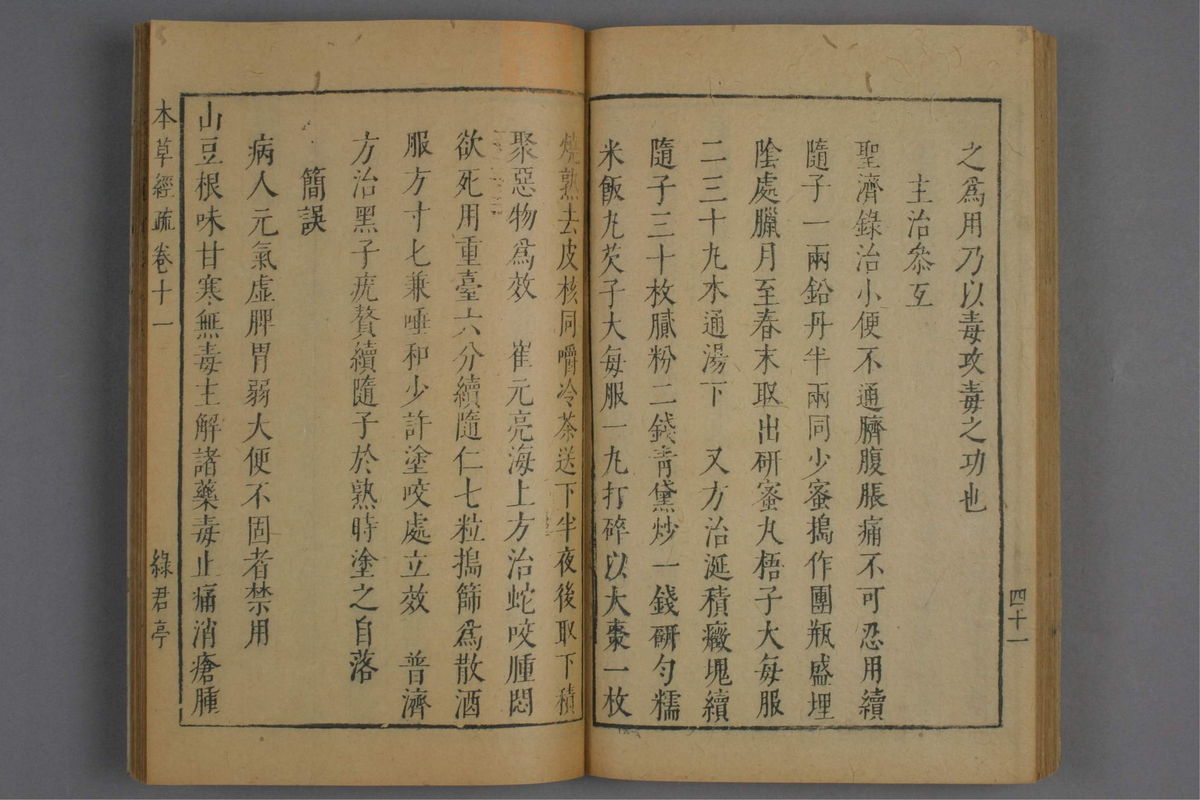 之爲用乃以毒攻毒之功也
主治叅互
聖濟錄治小便不通臍腹脹痛不可忍用續
隨子一兩鉛丹半兩同少蜜搗作團瓶盛埋
陰處臘月至春末取出研蜜丸梧子大每服
二三十丸木通湯下　又方治涎積癥塊續
隨子三十枚膩粉二錢靑黛炒一錢硏勻糯
米飯丸芡子大每服一丸打碎以大棗一枚
四十一
燒熟去皮核同嚼冷茶送下半夜後取下積
聚惡物爲效　崔元亮海上方治蛇咬腫悶
欲死用重臺六分續隨仁七粒搗篩爲散酒
服方寸七兼唾和少許塗咬處立效　普濟
方治黑子疣贅續隨子於熟時塗之自落
簡誤
病人元氣虛脾胃弱大便不固者禁用
山豆根味甘寒無毒主解諸藥毒止痛消瘡腫
本草經疏卷十一
綠君亭